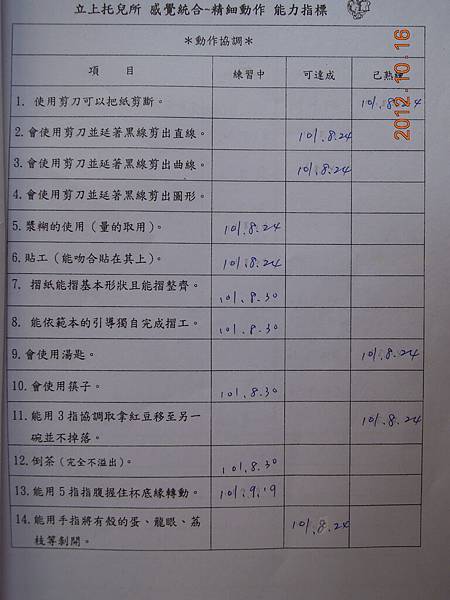 立上托兒所 感覺統合~精細動作 能力指標
＊動作協調＊
項 目 練習中 可達成 已熟練
1. 使用剪刀可以把紙剪斷。 101.8.24
2.會使用剪刀並延著黑線剪出直線。 101.8.24
3.會使用剪刀並延著黑線剪出曲線。 101.8.24
4.會使用剪刀並延著黑線剪出圖形。
5.漿糊的使用（量的取用）。 101.8.24
6.貼工（能吻合貼在其上）。 101.8.24
7. 摺紙能摺基本形狀且能摺整齊。 101.8.30
8. 能依範本的引導獨自完成摺工。 101.8.30
9.會使用湯匙。 101.8.24
10.會使用筷子。 101.8.30
11.能用3指協調取拿紅豆移至另一 101.8.24
碗並不掉落。
12.倒茶（完全不溢出）。 101.8.30
13.能用5指指腹握住杯底緣轉動。 101.9.19
14.能用手指將有殼的蛋、龍眼、荔 101.8.24
枝等剝開。
2012.10.16